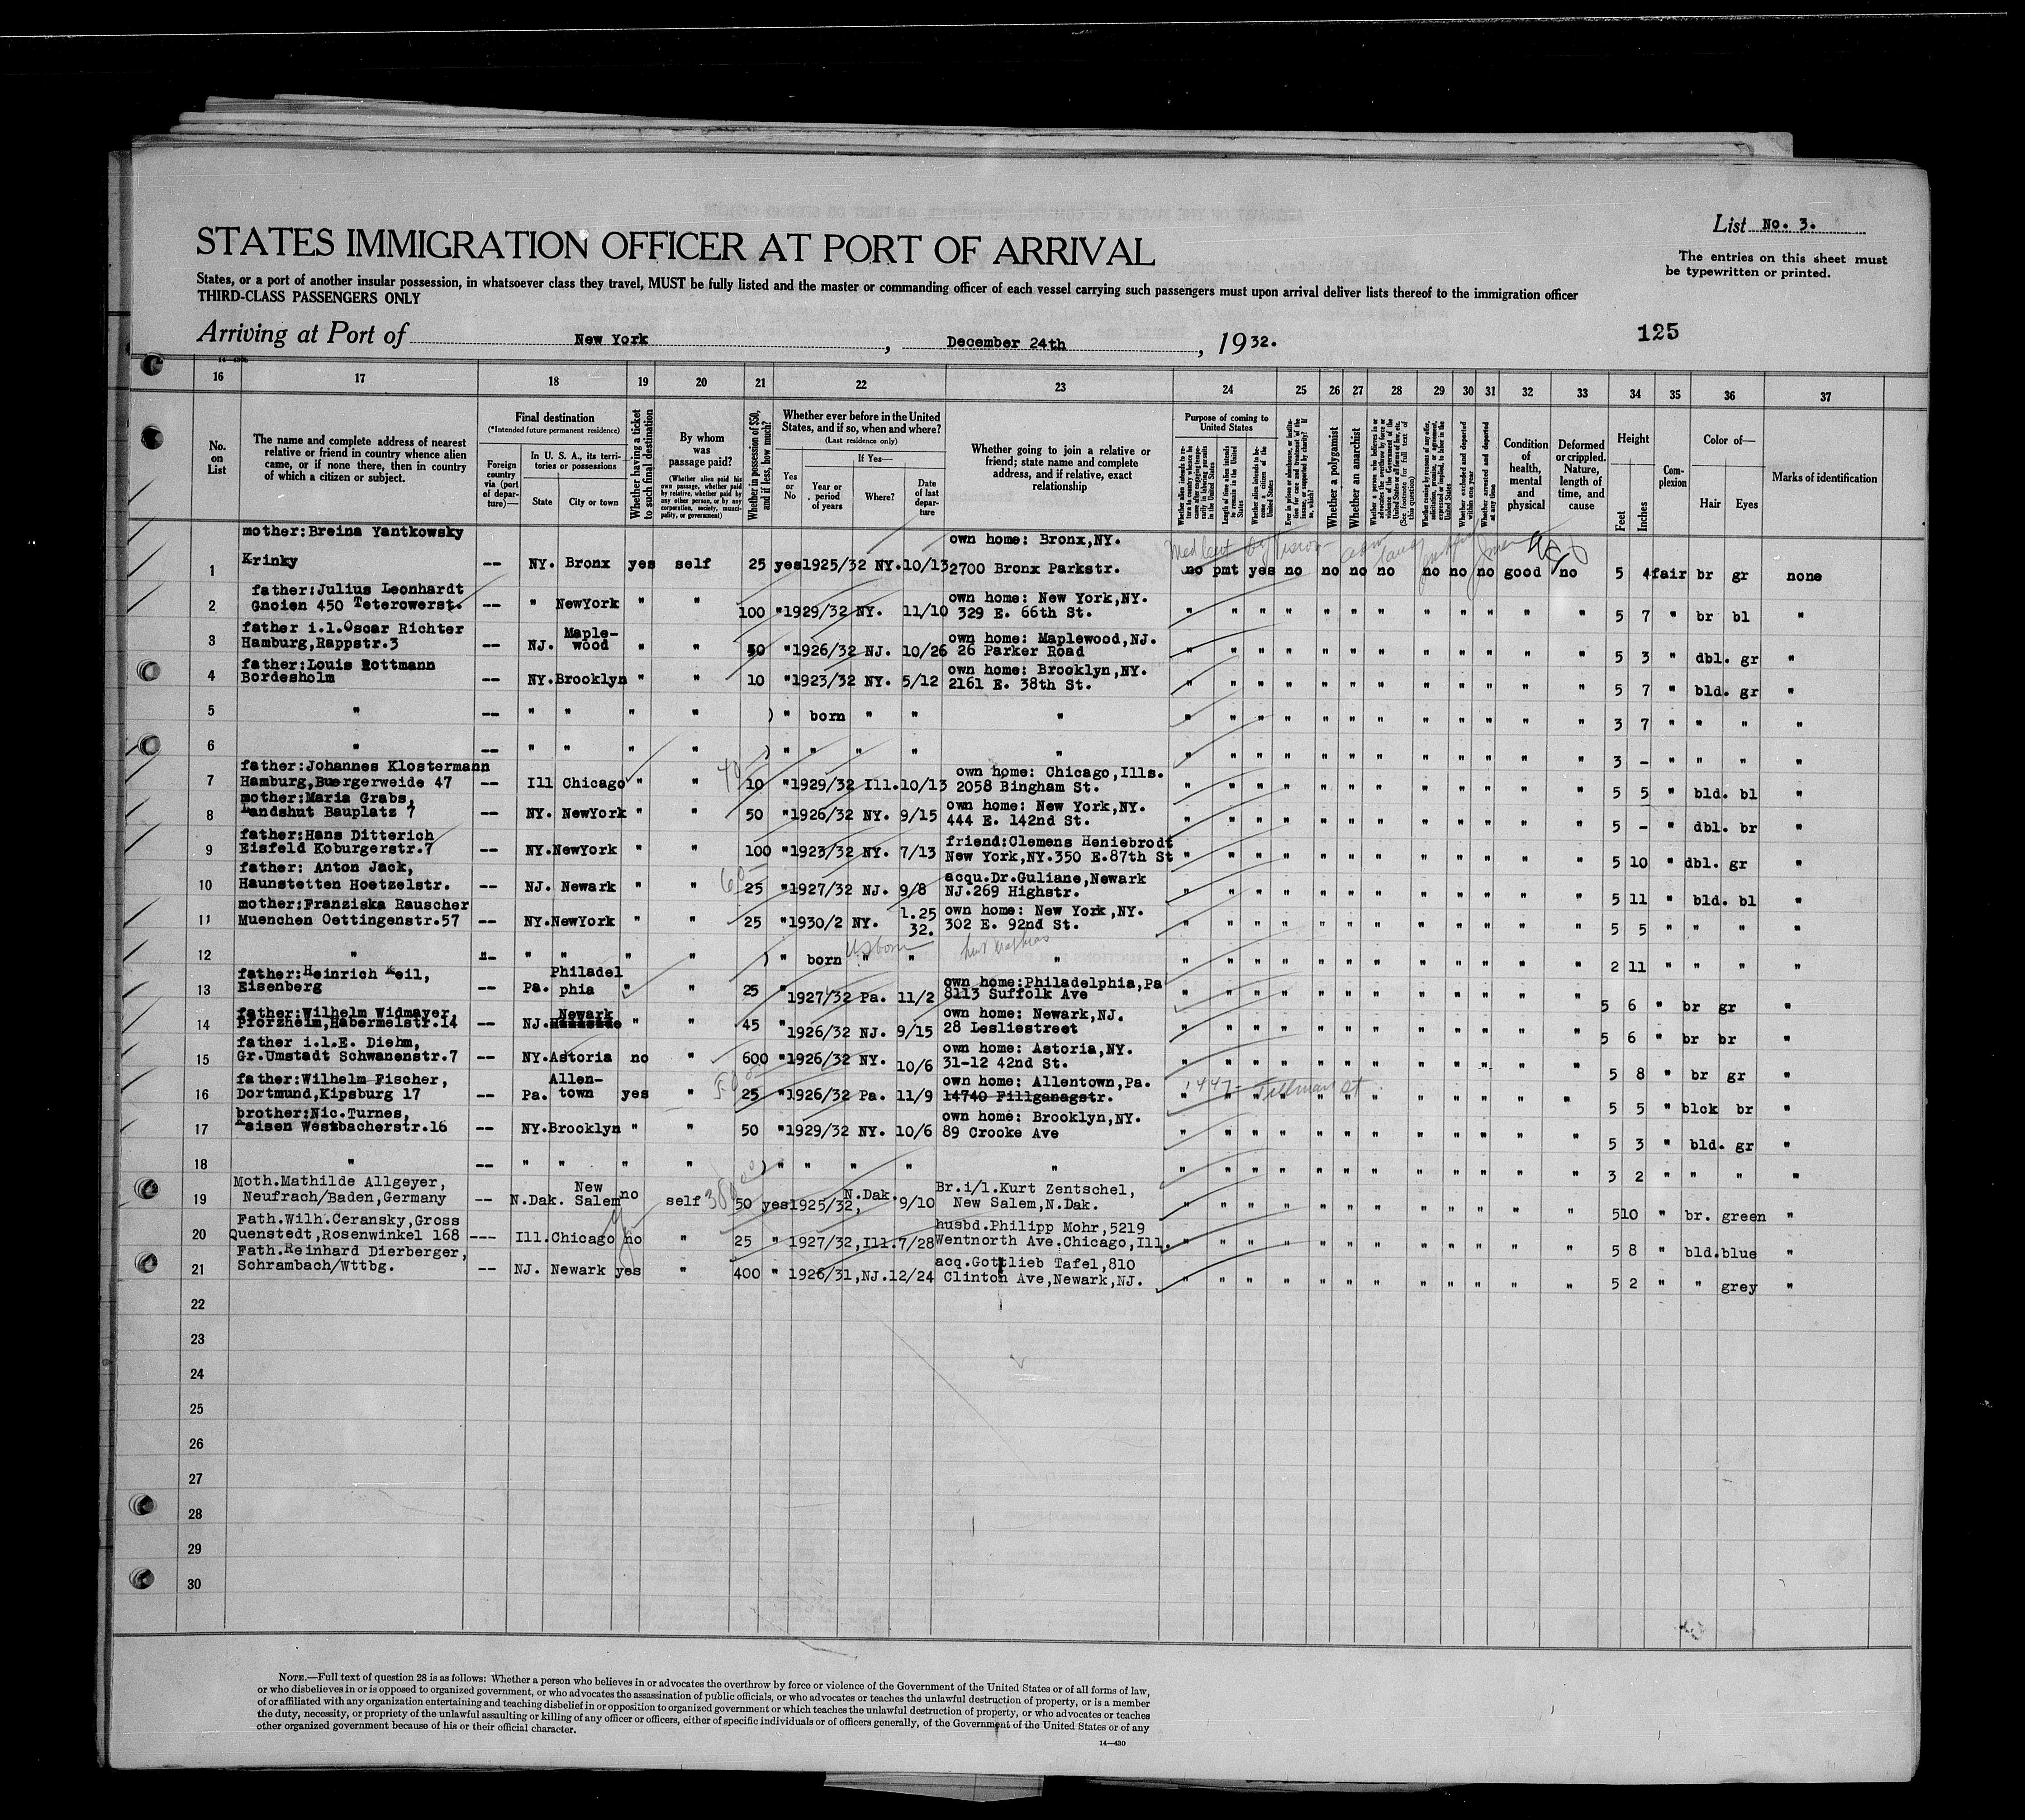 List No. 3.
STATES IMMIGRATION OFFICER AT PORT OF ARRIVAL
The entries on this sheet must
be typewritten or printed.
States, or a port of another insular possession, in whatsoever class they travel, MUST be fully listed and the master or commanding officer of each vessel carrying such passengers must upon arrival deliver lists thereof to the immigration officer
THIRD-CLASS PASSENGERS ONLY
Arriving at Port of New York, December 24th, 1932.
125
16 17 18 19 20 21 22 23 24 25 26 27 28 29 30 31 32 33 34 35 36 37
No. on List
The name and complete address of nearest relative or friend in country whence alien came, or if none there, then in country of which a citizen or subject.
Final destination
(*Intended future permanent residence)
Foreign country via (port of departure)—
In U. S. A., its territories or possessions
State
City or town
Whether having a ticket to such final destination
By whom was passage paid?
(Whether alien paid his own passage, whether paid by relative, whether paid by any other person, or by any corporation, society, municipality, or government)
Whether in possession of $50, and if less, how much?
Whether ever before in the United States, and if so, when and where?
(Last residence only)
Yes or No
If Yes—
Year or period of years
Where?
Date of last departure
Whether going to join a relative or friend; state name and complete address, and if relative, exact relationship
Purpose of coming to United States
Whether alien intends to return to country whence he came after engaging temporarily in laboring pursuits in the United States
Length of time alien intends to remain in the United States
Whether alien intends to become a citizen of the United States
Whether a polygamist
Whether an anarchist
Whether excluded and deported within one year
Whether arrested and deported at any time
Condition of health, mental and physical
Deformed or crippled. Nature, length of time, and cause
Height
Feet
Inches
Complexion
Color of—
Hair
Eyes
Marks of identification
mother:Breina Yantkowsky own home: Bronx,NY.
1 Krinky -- NY. Bronx yes self 25 yes1925/32 NY.10/13 2700 Bronx Parkstr. no pmt yes no no no no no no no good no 5 4 fair br gr none
father:Julius Leonhardt own home: New York,NY.
2 Gnoien 450 Teterowerst. -- " NewYork " " 100 "1929/32 NY. 11/10 329 E. 66th St. " " " " " " " " " " " " 5 7 " br bl "
father i.l.Oscar Richter Maple- own home: Maplewood,NJ.
3 Hamburg,Rappstr.3 -- NJ. wood " " 50 "1926/32 NJ. 10/26 26 Parker Road " " " " " " " " " " " " 5 3 " dbl. gr "
father:Louis Rottmann own home: Brooklyn,NY.
4 Bordesholm -- NY.Brooklyn " " 10 "1923/32 NY. 5/12 2161 E. 38th St. " " " " " " " " " " " " 5 7 " bld. gr "
5 " -- " " " " ) " born " " " " " " " " " " " " " " " " 3 7 " " " "
6 " -- " " " " ) " " " " " " " " " " " " " " " " " " 3 - " " " "
father:Johannes Klostermann own home: Chicago,Ills.
7 Hamburg,Buergerweide 47 -- Ill Chicago " " 10 "1929/32 Ill.10/13 2058 Bingham St. " " " " " " " " " " " " 5 5 " bld. bl "
mother:Maria Grabs, own home: New York,NY.
8 Landshut Bauplatz 7 -- NY. NewYork " " 50 "1926/32 NY. 9/15 444 E. 142nd St. " " " " " " " " " " " " 5 - " dbl. br "
father:Hans Ditterich friend:Clemens Heniebrodt
9 Eisfeld Koburgerstr.7 -- NY.NewYork " " 100 "1923/32 NY. 7/13 New York,NY.350 E.87th St " " " " " " " " " " " " 5 10 " dbl. gr "
father: Anton Jack, acqu.Dr.Guliane,Newark
10 Haunstetten Hoetzelstr. -- NJ. Newark " " 25 "1927/32 NJ. 9/8 NJ.269 Highstr. " " " " " " " " " " " " 5 11 " bld. bl "
mother:Franziska Rauscher 1.25 own home: New York,NY.
11 Muenchen Oettingenstr.57 -- NY.NewYork " " 25 "1930/2 NY. 32. 302 E. 92nd St. " " " " " " " " " " " " 5 5 " " " "
12 " -- " " " " ) " born " " " " " " " " " " " " " " " " 2 11 " " " "
father:Heinrich Keil, Philadel own home:Philadelphia,Pa
13 Eisenberg -- Pa. phia " " 25 " 1927/32 Pa. 11/2 8113 Suffolk Ave " " " " " " " " " " " " 5 6 " br gr "
father:Wilhelm Widmayer, Newark own home: Newark,NJ.
14 Pforzheim,Habermelstr.14 -- NJ. " " 45 " 1926/32 NJ. 9/15 28 Lesliestreet " " " " " " " " " " " " 5 6 " br br "
father i.l.E. Diehm, own home: Astoria,NY.
15 Gr.Umstadt Schwanenstr.7 -- NY.Astoria no " 600 "1926/32 NY. 10/6 31-12 42nd St. " " " " " " " " " " " " 5 8 " br gr "
father:Wilhelm Fischer, Allen- own home: Allentown,Pa. 1447 Tillman St
16 Dortmund,Kipsburg 17 -- Pa. town yes " 25 "1926/32 Pa. 11/9 14740 Fillganagstr. " " " " " " " " " " " " 5 5 " blck br "
brother:Nic.Turnes, own home: Brooklyn,NY.
17 Kaisen Westbacherstr.16 -- NY.Brooklyn " " 50 "1929/32 NY. 10/6 89 Crooke Ave " " " " " " " " " " " " 5 3 " bld. gr "
18 " -- " " " " ) " " " " " " " " " " " " " " " " " 3 2 " " " "
Moth.Mathilde Allgeyer, New Br.i/l.Kurt Zentschel,
19 Neufrach/Baden,Germany -- N.Dak. Salem no self 50 yes1925/32, N.Dak. 9/10 New Salem,N.Dak. " " " " " " " " " " " " 5 10 " br. green "
Fath.Wilh.Ceransky,Gross husbd.Philipp Mohr,5219
20 Quenstedt,Rosenwinkel 168 --- Ill.Chicago no " 25 " 1927/32,Ill.7/28 Wentnorth Ave.Chicago,Ill. " " " " " " " " " " " " 5 8 " bld.blue "
Fath.Reinhard Dierberger, acq.Gottlieb Tafel,810
21 Schrambach/Wttbg. -- NJ. Newark yes " 400 " 1926/31,NJ.12/24 Clinton Ave,Newark,NJ. " " " " " " " " " " " " 5 2 " " grey "
22
23
24
25
26
27
28
29
30
NOTE.—Full text of question 28 is as follows: Whether a person who believes in or advocates the overthrow by force or violence of the Government of the United States or of all forms of law,
or who disbelieves in or is opposed to organized government, or who advocates the assassination of public officials, or who advocates or teaches the unlawful destruction of property, or is a member
of or affiliated with any organization entertaining and teaching disbelief in or opposition to organized government or which teaches the unlawful destruction of property, or who advocates or teaches
the duty, necessity, or propriety of the unlawful assaulting or killing of any officer or officers, either of specific individuals or of officers generally, of the Government of the United States or of any
other organized government because of his or their official character.
14—430